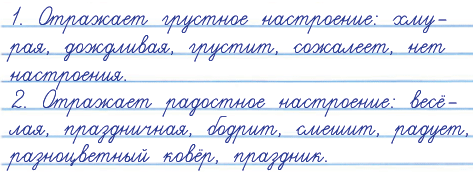 1. Отражает грустное настроение: хму-
рая, дождливая, грустит, сожалеет, нет
настроения.
2. Отражает радостное настроение: весё-
лая, праздничная, бодрит, смешит, радует,
разноцветный ковёр, праздник.